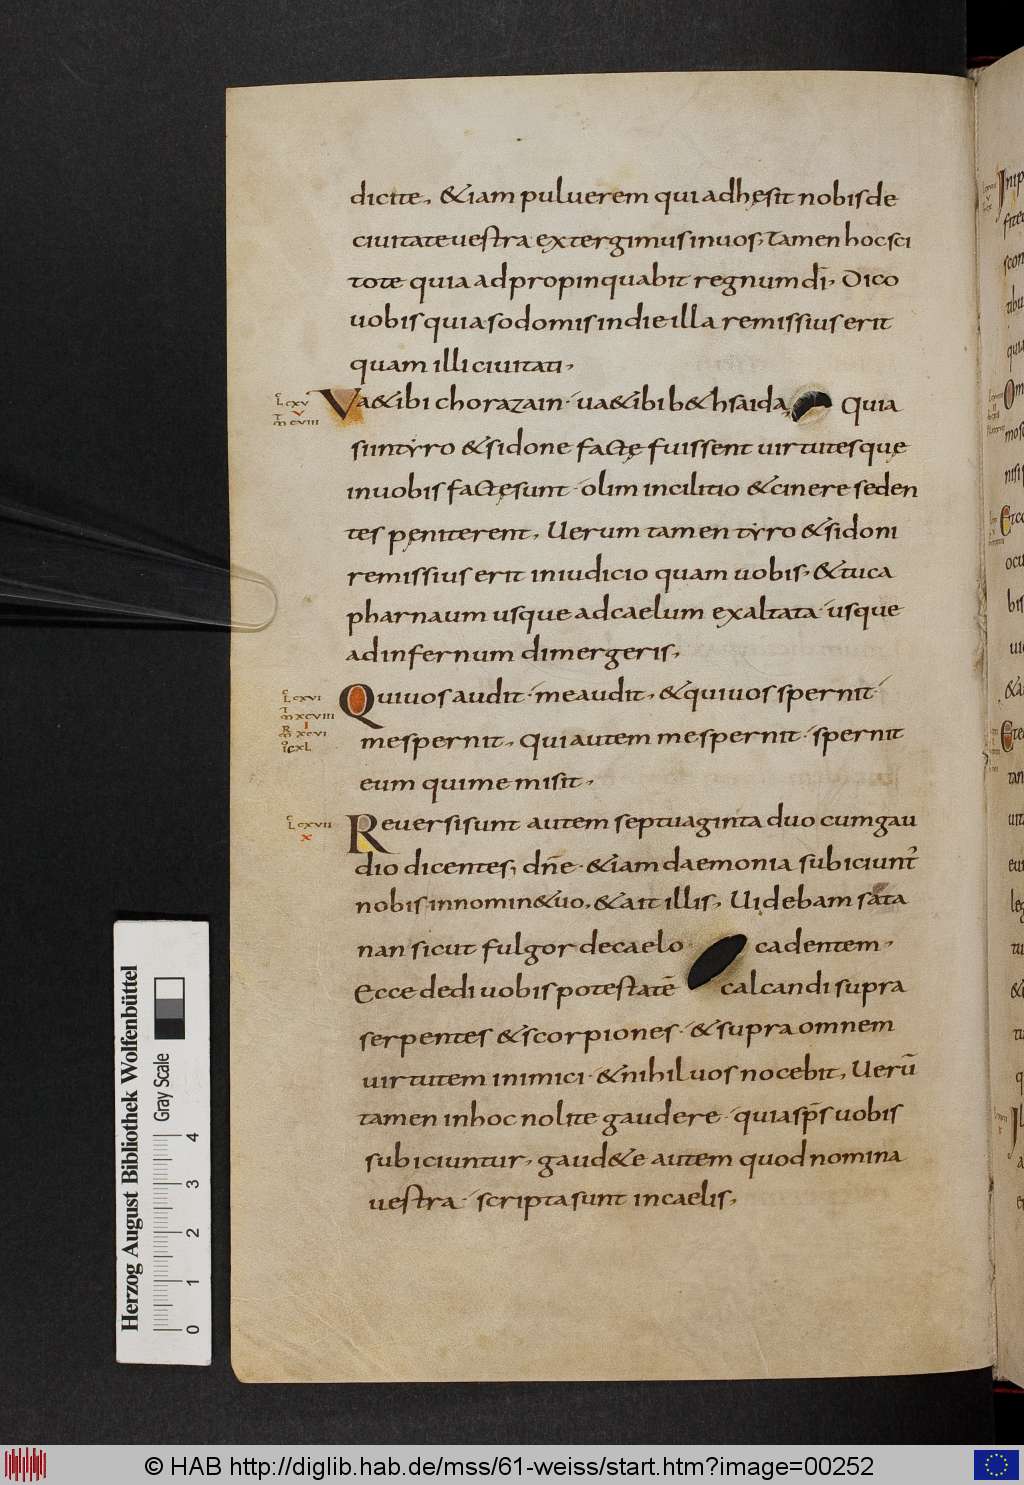 dicite, &iam pulverem qui adhęsit nobis de
civitate vestra extergimus in uos, Tamen hoc sci
tote quia adpropinquabit regnum dī, Dico
uobis quia sodomis in die illa remissius erit
quam illi civitati,
L CXV
V
M CVIII
Va&ibi chorazain· ua&ibi b&hsaida, Quia
si in tyro & sidone factę fuissent virtutes quę
in uobis factę sunt· olim in cilitio & cinere seden
tes pęniterent, Uerum tamen tyro & sidoni
remissius erit in iudicio quam uobis, & tu ca
pharnaum usque ad caelum exaltata· usque
ad infernum dimergeris,
L CXVI
M XCVIII
I
M XCVI
IO CXL
Qui uos audit· me audit, & qui uos spernit·
me spernit, Qui autem me spernit· spernit
eum qui me misit,
L CXVII
X
Reuersi sunt autem septuaginta duo cum gau
dio dicentes, dn̄e· &iam daemonia subiciunt᷑
nobis in nomin& uo, & ait illis, Uidebam sata
nan sicut fulgor de caelo cadentem,
Ecce dedi uobis potestatē calcandi supra
serpentes & scorpiones· & supra omnem
virtutem inimici· & nihil uos nocebit, Uerū
tamen in hoc nolite gaudere· quia sps̄ uobis
subiciuntur, gaud&e autem quod nomina
vestra· scripta sunt in caelis,
Herzog August Bibliothek Wolfenbüttel
Gray Scale
0 1 2 3 4
© HAB http://diglib.hab.de/mss/61-weiss/start.htm?image=00252